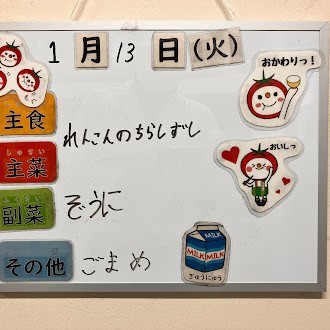 1月13日(火)
おかわりっ!
主食
れんこんのちらしずし
しゅさい
主菜
おいしっ
副菜
ぞうに
その他
ごまめ
MILK
MILK MILK
ぎゅうにゅう